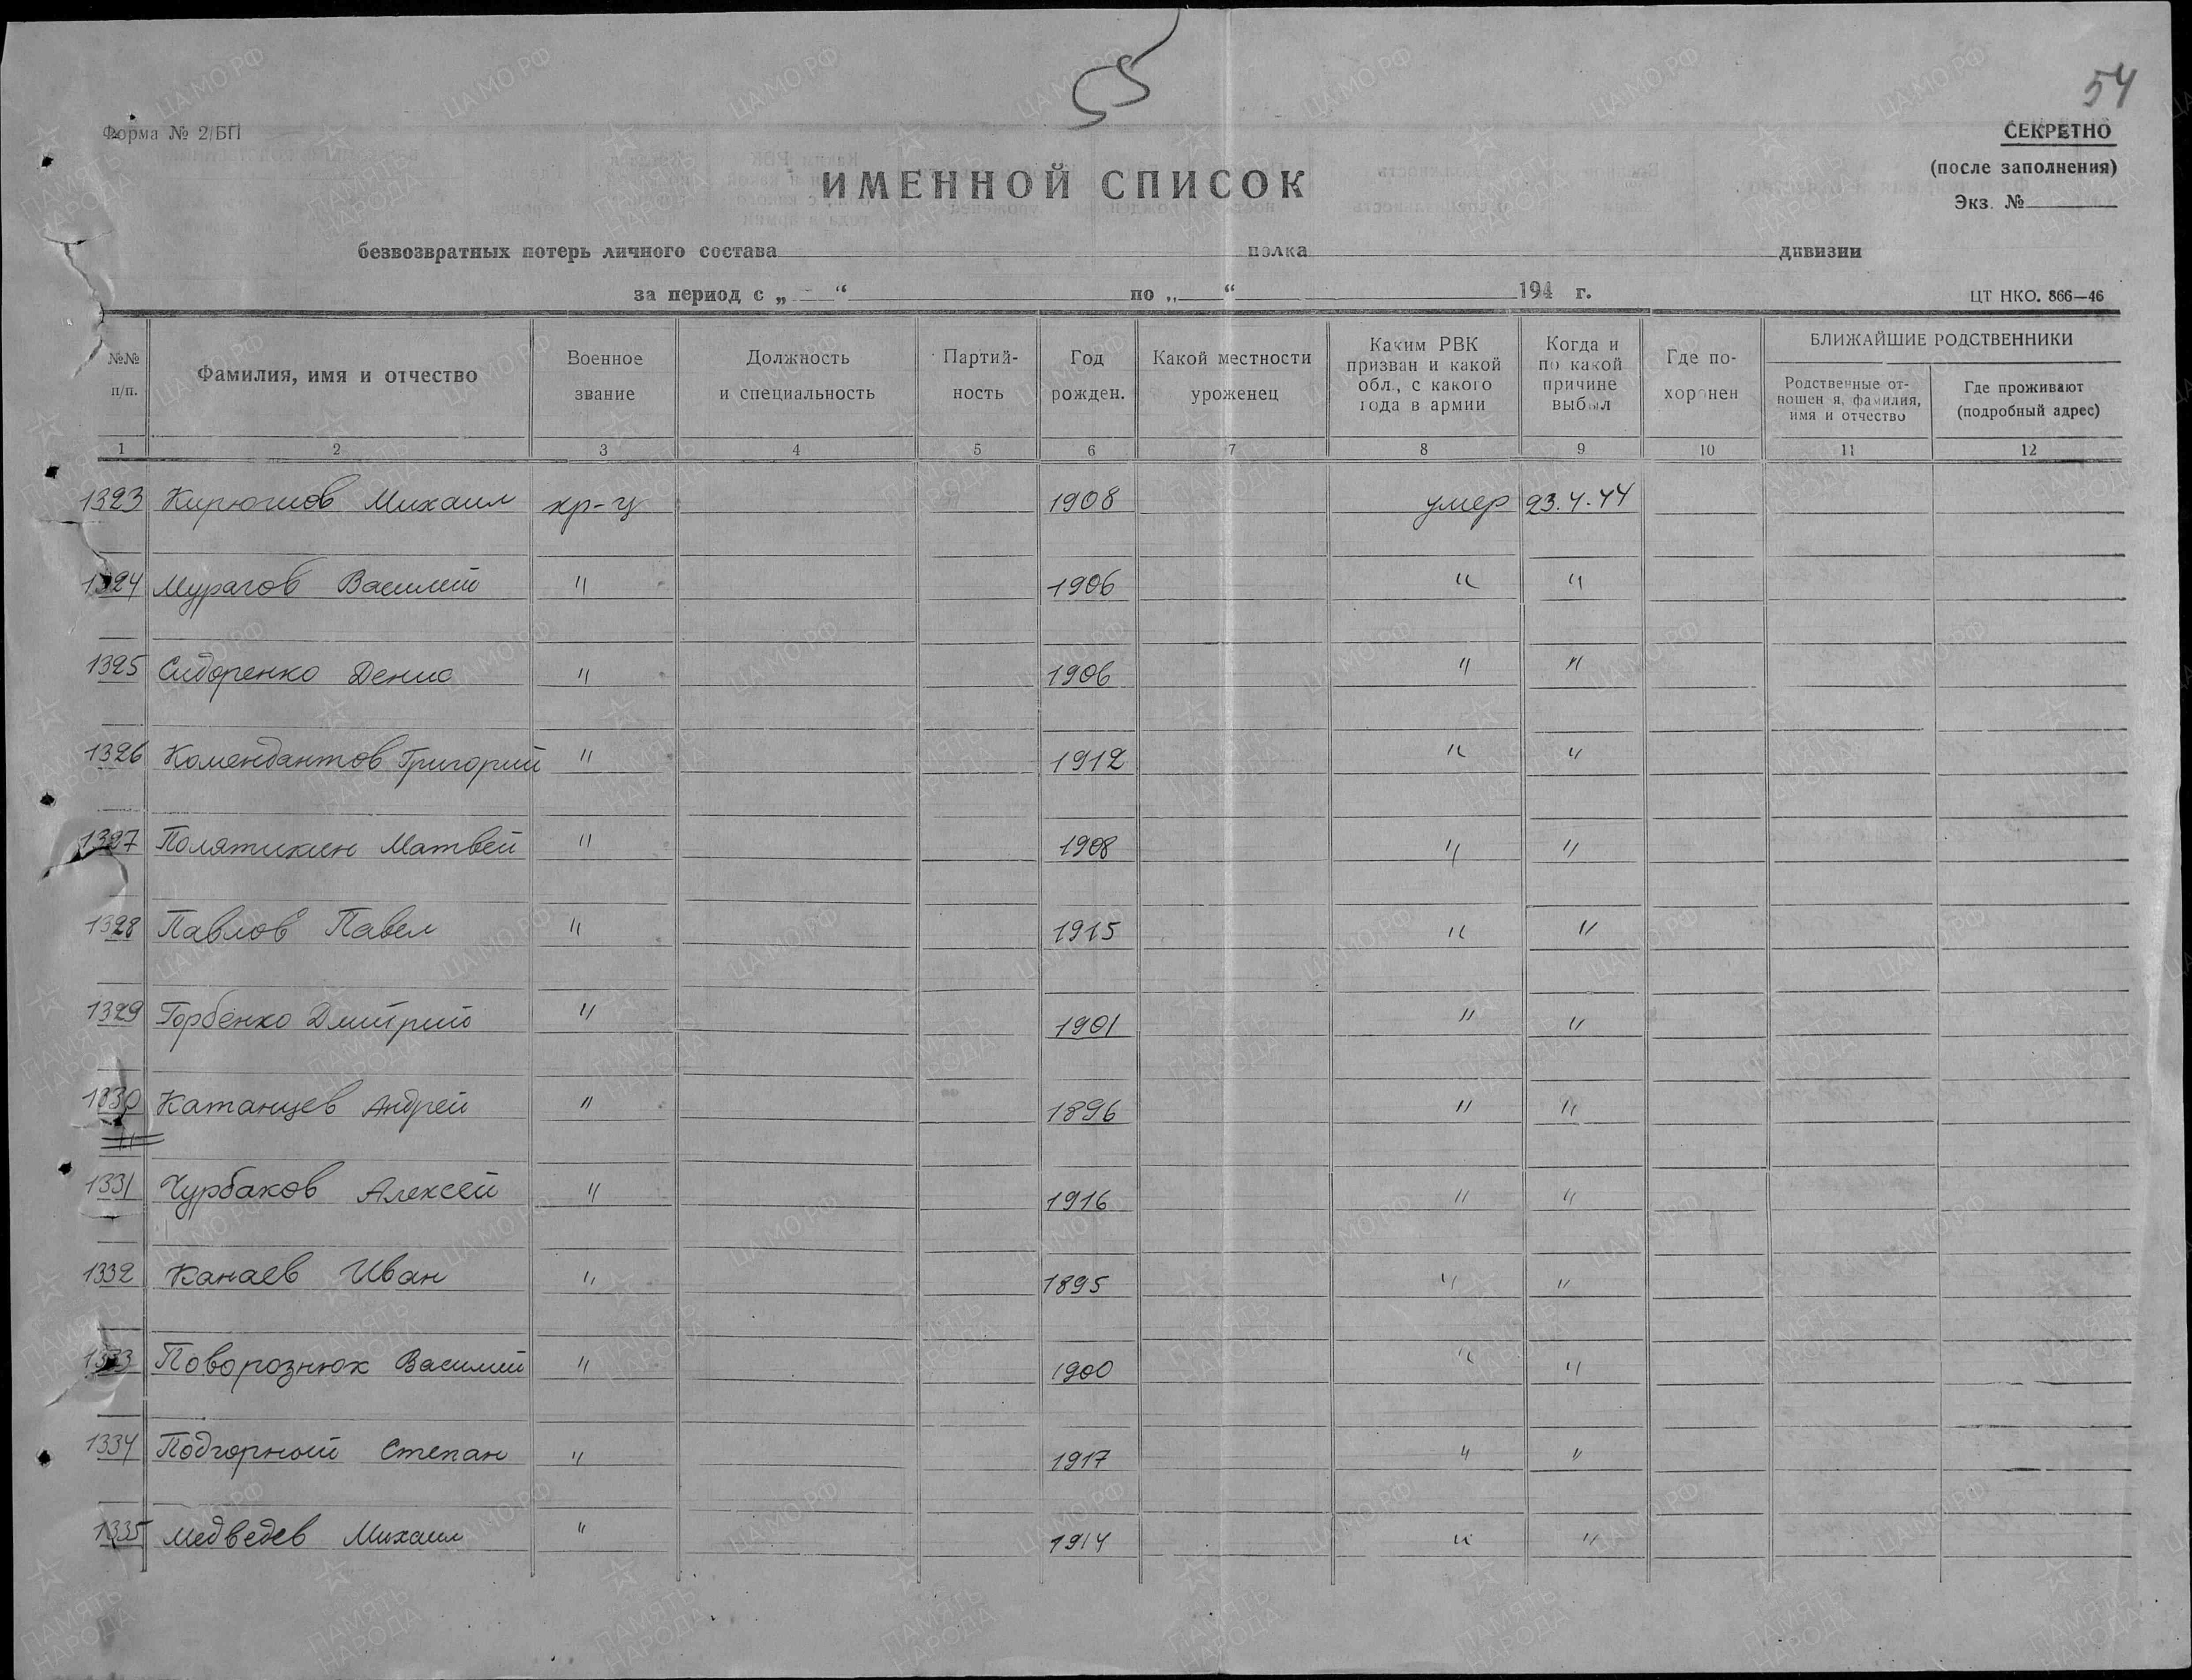 55
54
Форма № 2/БП
СЕКРЕТНО
(после заполнения)
Экз. №
ИМЕННОЙ СПИСОК
безвозвратных потерь личного состава полка дивизии
за период с „ “ по „ “ 194 г.
ЦТ НКО. 866—46
№№ п/п. Фамилия, имя и отчество Военное звание Должность и специальность Партийность Год рожден. Какой местности уроженец Каким РВК призван и какой обл., с какого года в армии Когда и по какой причине выбыл Где похоронен БЛИЖАЙШИЕ РОДСТВЕННИКИ
Родственные отношения, фамилия, имя и отчество Где проживают (подробный адрес)
1 2 3 4 5 6 7 8 9 10 11 12
1323 Кирюшов Михаил кр-ц 1908 умер 23.4.44
1324 Мурагов Василий " 1906 " "
1325 Сидоренко Денис " 1906 " "
1326 Комендантов Григорий " 1912 " "
1327 Полятикин Матвей " 1908 " "
1328 Павлов Павел " 1915 " "
1329 Горбенко Дмитрий " 1901 " "
1330 Катанцев Андрей " 1896 " "
1331 Чурбаков Алексей " 1916 " "
1332 Канаев Иван " 1895 " "
1333 Поворознюк Василий " 1900 " "
1334 Подгорный Степан " 1917 " "
1335 Медведев Михаил " 1914 " "